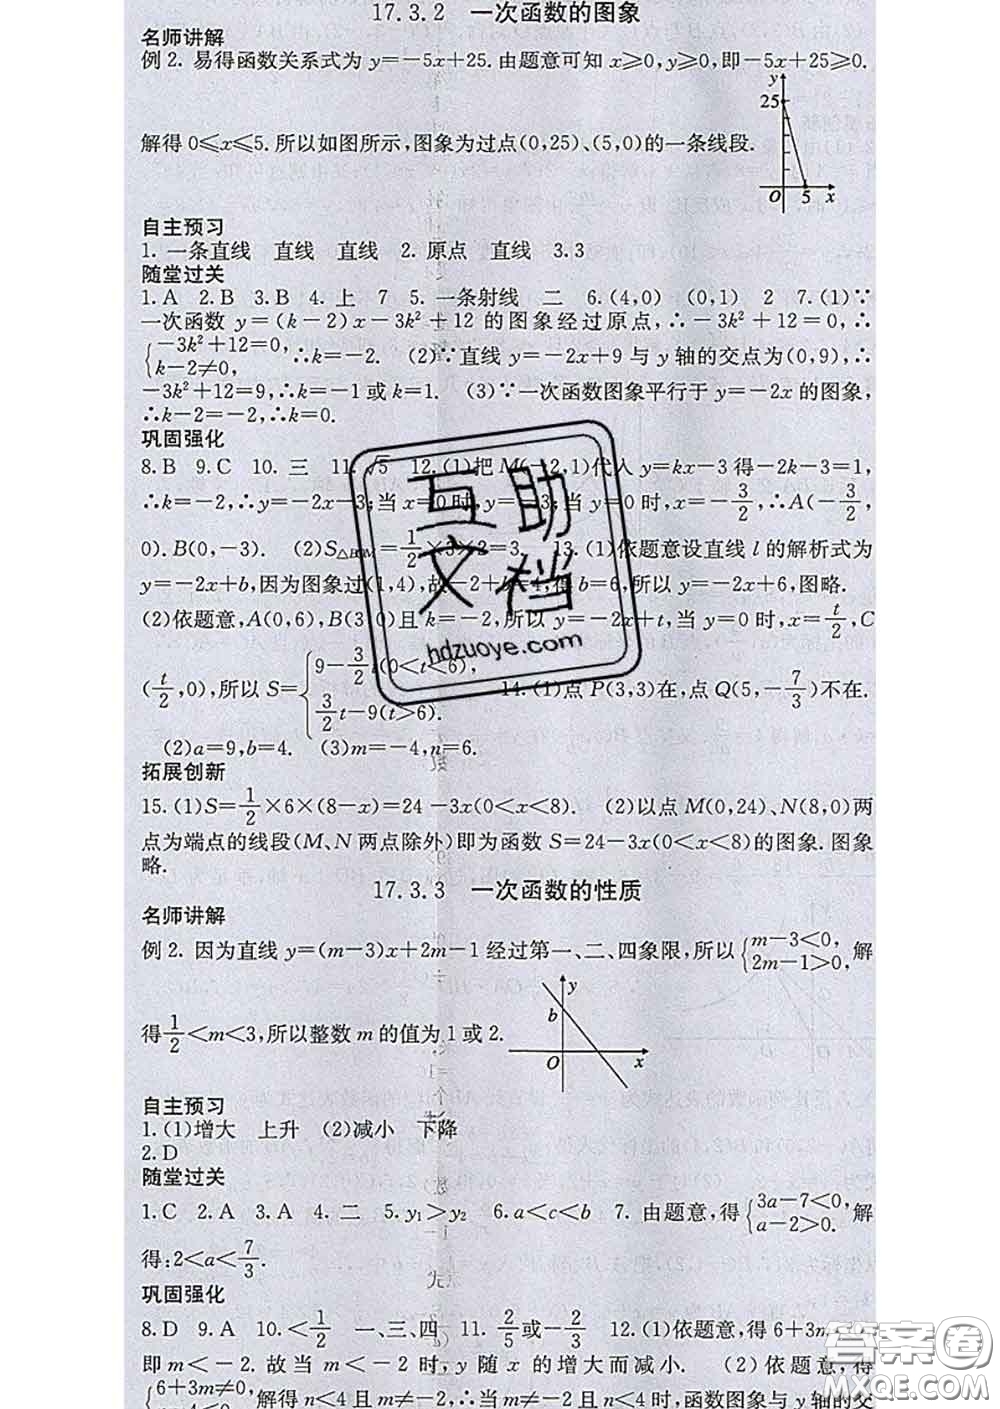 17.3.2 一次函数的图象
名师讲解
例2. 易得函数关系式为 y=-5x+25. 由题意可知 x≥0, y≥0, 即-5x+25≥0.
y
25
解得 0≤x≤5. 所以如图所示, 图象为过点(0,25)、(5,0)的一条线段.
O 5 x
自主预习
1. 一条直线 直线 直线 2. 原点 直线 3.3
随堂过关
1. A 2. B 3. B 4. 上 7 5. 一条射线 二 6. (4,0) (0,1) 2 7. (1)∵
一次函数 y=(k-2)x-3k²+12 的图象经过原点, ∴-3k²+12=0, ∴
{-3k²+12=0, k-2≠0, ∴k=-2. (2)∵直线 y=-2x+9 与 y 轴的交点为(0,9), ∴
-3k²+12=9, ∴k=-1 或 k=1. (3)∵一次函数图象平行于 y=-2x 的图象,
∴k-2=-2, ∴k=0.
巩固强化
8. B 9. C 10. 三 11. √5 12. (1)把 M(-2,1)代入 y=kx-3 得-2k-3=1,
∴k=-2, ∴y=-2x-3; 当 x=0 时, y=-3; 当 y=0 时, x=-3/2, ∴A(-3/2,
0). B(0,-3). (2)S△BOM=1/2×3×2=3. 13. (1)依题意设直线 l 的解析式为
y=-2x+b, 因为图象过(1,4), 故-2+b=4, 得 b=6, 所以 y=-2x+6, 图略.
(2)依题意, A(0,6), B(3,0)且 k=-2, 所以 y=-2x+t, 当 y=0 时, x=t/2, C
(t/2,0), 所以 S={9-3/2t(0<t<6), 3/2t-9(t>6). 14. (1)点 P(3,3)在, 点 Q(5,-7/3)不在.
(2)a=9, b=4. (3)m=-4, n=6.
拓展创新
15. (1)S=1/2×6×(8-x)=24-3x(0<x<8). (2)以点 M(0,24)、N(8,0)两
点为端点的线段(M、N 两点除外)即为函数 S=24-3x(0<x<8)的图象. 图象
略.
17.3.3 一次函数的性质
名师讲解
例2. 因为直线 y=(m-3)x+2m-1 经过第一、二、四象限, 所以{m-3<0, 2m-1>0, 解
y
b
得1/2<m<3, 所以整数 m 的值为 1 或 2.
O x
自主预习
1. (1)增大 上升 (2)减小 下降
2. D
随堂过关
1. C 2. A 3. A 4. 二 5. y₁>y₂ 6. a<c<b 7. 由题意, 得{3a-7<0, a-2>0. 解
得: 2<a<7/3.
巩固强化
8. D 9. A 10. <1/2 一、三、四 11. 2/5或-2/3 12. (1)依题意, 得 6+3m
即 m<-2. 故当 m<-2 时, y 随 x 的增大而减小. (2)依题意, 得
{6+3m≠0, 解得 n<4 且 m≠-2, ∴当 m≠-2 且 n<4 时, 函数图象与 y 轴的交
互助
文档
hdzuoye.com
答案圈
MXQE.COM